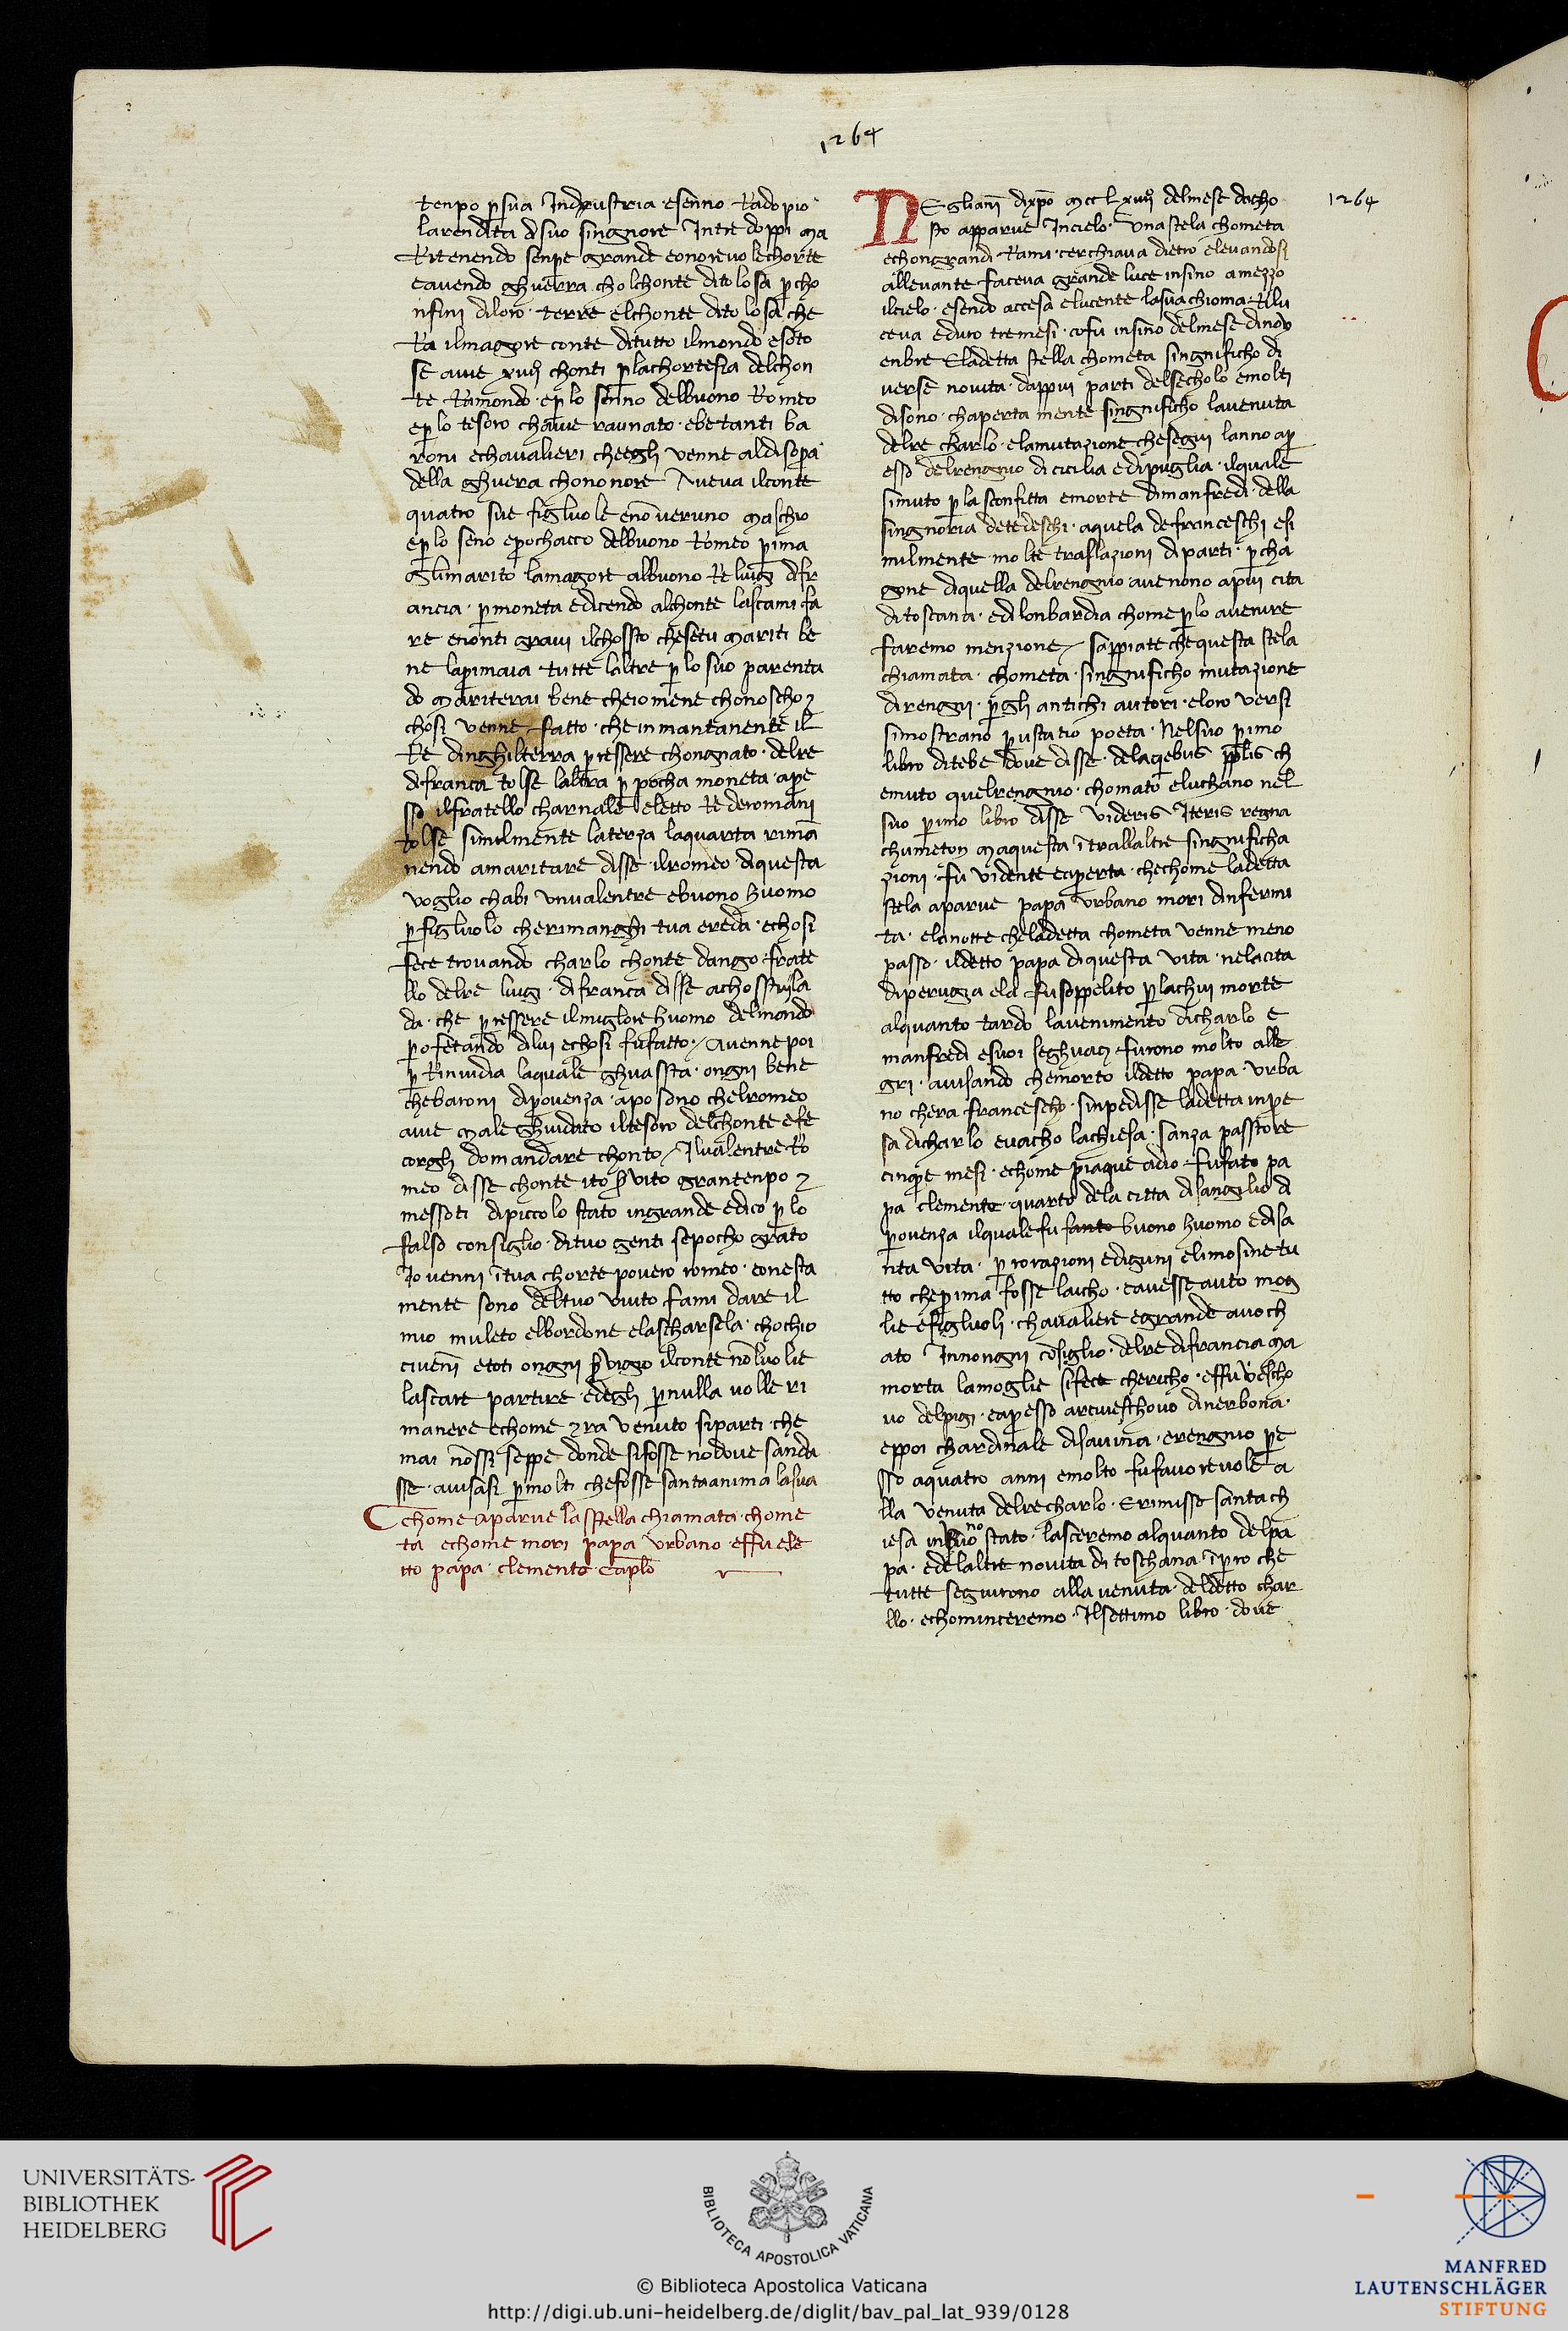 1264
tenpo p sua Indxustria esenno Radopio
larendita di suo singnore Intre doppi ma
Ritenendo senpe grande eonorevolechorte
eavendo ghuerra cholchonte ditolosa p cho
nfini diloro · terre elchonte ditolosa che
Ra ilmagore conte ditutto ilmondo esoto
se avve xiiij chonti p lachortesia delchon
te Ramondo · ep lo senno delbuono Romeo
ep lo tesoro chavve raunato · ebe tanti ba
roni echavalieri cheegli venne aldisopa
della ghuera chononore Aveva ilconte
quatro sue figluole enō veruno maschio
ep lo seno epochacco delbuono Romeo pima
glimarito lamagore albuono Re luigi difr
ancia · p moneta edicendo alchonte lascami fa
re enonti gravi ilchossto chesetu mariti be
ne lapimaia tutte laltre p lo suo parenta
do mariterai bene cheiomene chonoscho
chosi venne fatto · che inmantanente il
Re dinghilterra p essere chongnato · delre
difranca tolse laltra p pocha moneta · ape
sso ilfratello charnale eletto Re deromani
tolse similmente laterza laquarta rimā
nendo amaritare disse ilromeo diquesta
voglio chabi unvalentre ebuono huomo
p figluolo cherimanghi tua ereda · echosi
fece trovando charlo chonte dango · frate
llo delre luigi · difranca disse achosstuj la
da · che p essere ilmiglore huomo delmondo
p ofetando dilui echosi fufatto / Avenne poi
p Rinvidia laquale ghuassta · ongni bene
chebaroni dipovenza · aposono chelromeo
avve male ghuidato iltesoro delchonte efe
corgli domandare chonto / Ilvalentre Ro
meo disse chonte ito s vito grantenpo
messoti dipiccolo stato ingrande edico p lo
falso consiglio · dituo genti sepocho grato
Io venni ī tua chorte povero romeo · eonesta
mente sono deltuo vivto fami dare il
mio muleto elbordone elascharsela · chochio
civenī etoti ongni s vigio ilconte nō luolie
lascare partire · edegli p nulla volle ri
manere echome era venuto siparti · che
mai nōssi seppe donde sifosse nodove sanda
sse · avisasi p molti chefosse santaanima lasua
Cchome aparve lasstella chiamata · chome
ta echome mori papa urbano · effu ele
tto papa · clemento · caplō
NEglianī dixpō mcc Lxiiij delmese dacho
sto apparve Incielo · una stela chometa
echongrandi Rami · cerchiava dietro elevandosi
allevante · faceva grande luce insino amezzo
ilcielo · esendo accesa elucente lasuachioma · Rilu
ceva eduro tremesi · cofu insino delmese dinov
enbre Eladetta stella chometa singnificho di
verse novita · dappiu parti delsecholo emolti
disono · chaperta mente singnificho lavenuta
delre charlo · elamutazione chesegui lanno ap
esso delrengnio di cicilia e dipuglia · ilquale
simuto p la sconfitta emorte dimanfredi · della
singnoria detedeschi · aquela defranceschi esi
milmente · molte traslazioni diparti · p cha
gone diquella delrengnio avenono apiu cita
ditoscana · edi lonbardia chome p lo avenire
faremo menzione / sappiate chequesta stela
chiamata · chometa · singnificho mutazione
direngni · p gli antichi autori · eloro versi
simostrano p ustatio poeta · Nelsuo pimo
libro ditebe dove disse · delaqebus pplis ch
emuto quelrengnio · chomato eluchano nel
suo p imo libro disse videris Iteris regna
chumeton maquesta ī trallaltre singnificha
zioni · fu vidente ecperta · chechome ladetta
stela aparve papa urbano mori dinfermi
ta · elanotte cheladetta chometa venne meno
passo · ildetto papa diquesta vita · nelacita
diperugza ela fusoppelito p lachui morte
alquanto tardo lavenimento dicharlo e
manfredi esuoi seghuaci · furono molto alle
gri · avisando chemorto ildetto papa · urba
no chera francescho · sinpedisse ladetta inpe
sa dicharlo evacho lachiesa · sanza passtore
cinqe mesi · echome piaque adio · fufato pa
pa clemento · quarto dela citta disangilio di
povenza ilquale fu fanto buono huomo edisa
nta vita · p iorazioni edigiuni elimosine tu
tto chep ima fosse laicho · eavesse auto mog
lie efigluoli · chavaliere egrande avoch
ato Innongni cōsiglio · delre difrancia ma
morta lamoglie sifece chericho · effu vescho
vo delpigi · eapesso arciveschovo dinerbona ·
eppoi chardinale disavina · erengnio pe
sso aquatro anni emolto fufavorevole a
lla venuta delrecharlo · Erimisse santach
iesa inbuono stato · lasceremo alquanto delpa
pa · edelaltre novita di toschana īpero che
tutte seguirono alla venuta · deldetto char
llo · echominceremo · Ilsettimo libro · dove
1264
UNIVERSITÄTS-
BIBLIOTHEK
HEIDELBERG
BIBLIOTECA APOSTOLICA VATICANA
© Biblioteca Apostolica Vaticana
http://digi.ub.uni-heidelberg.de/diglit/bav_pal_lat_939/0128
MANFRED
LAUTENSCHLÄGER
STIFTUNG